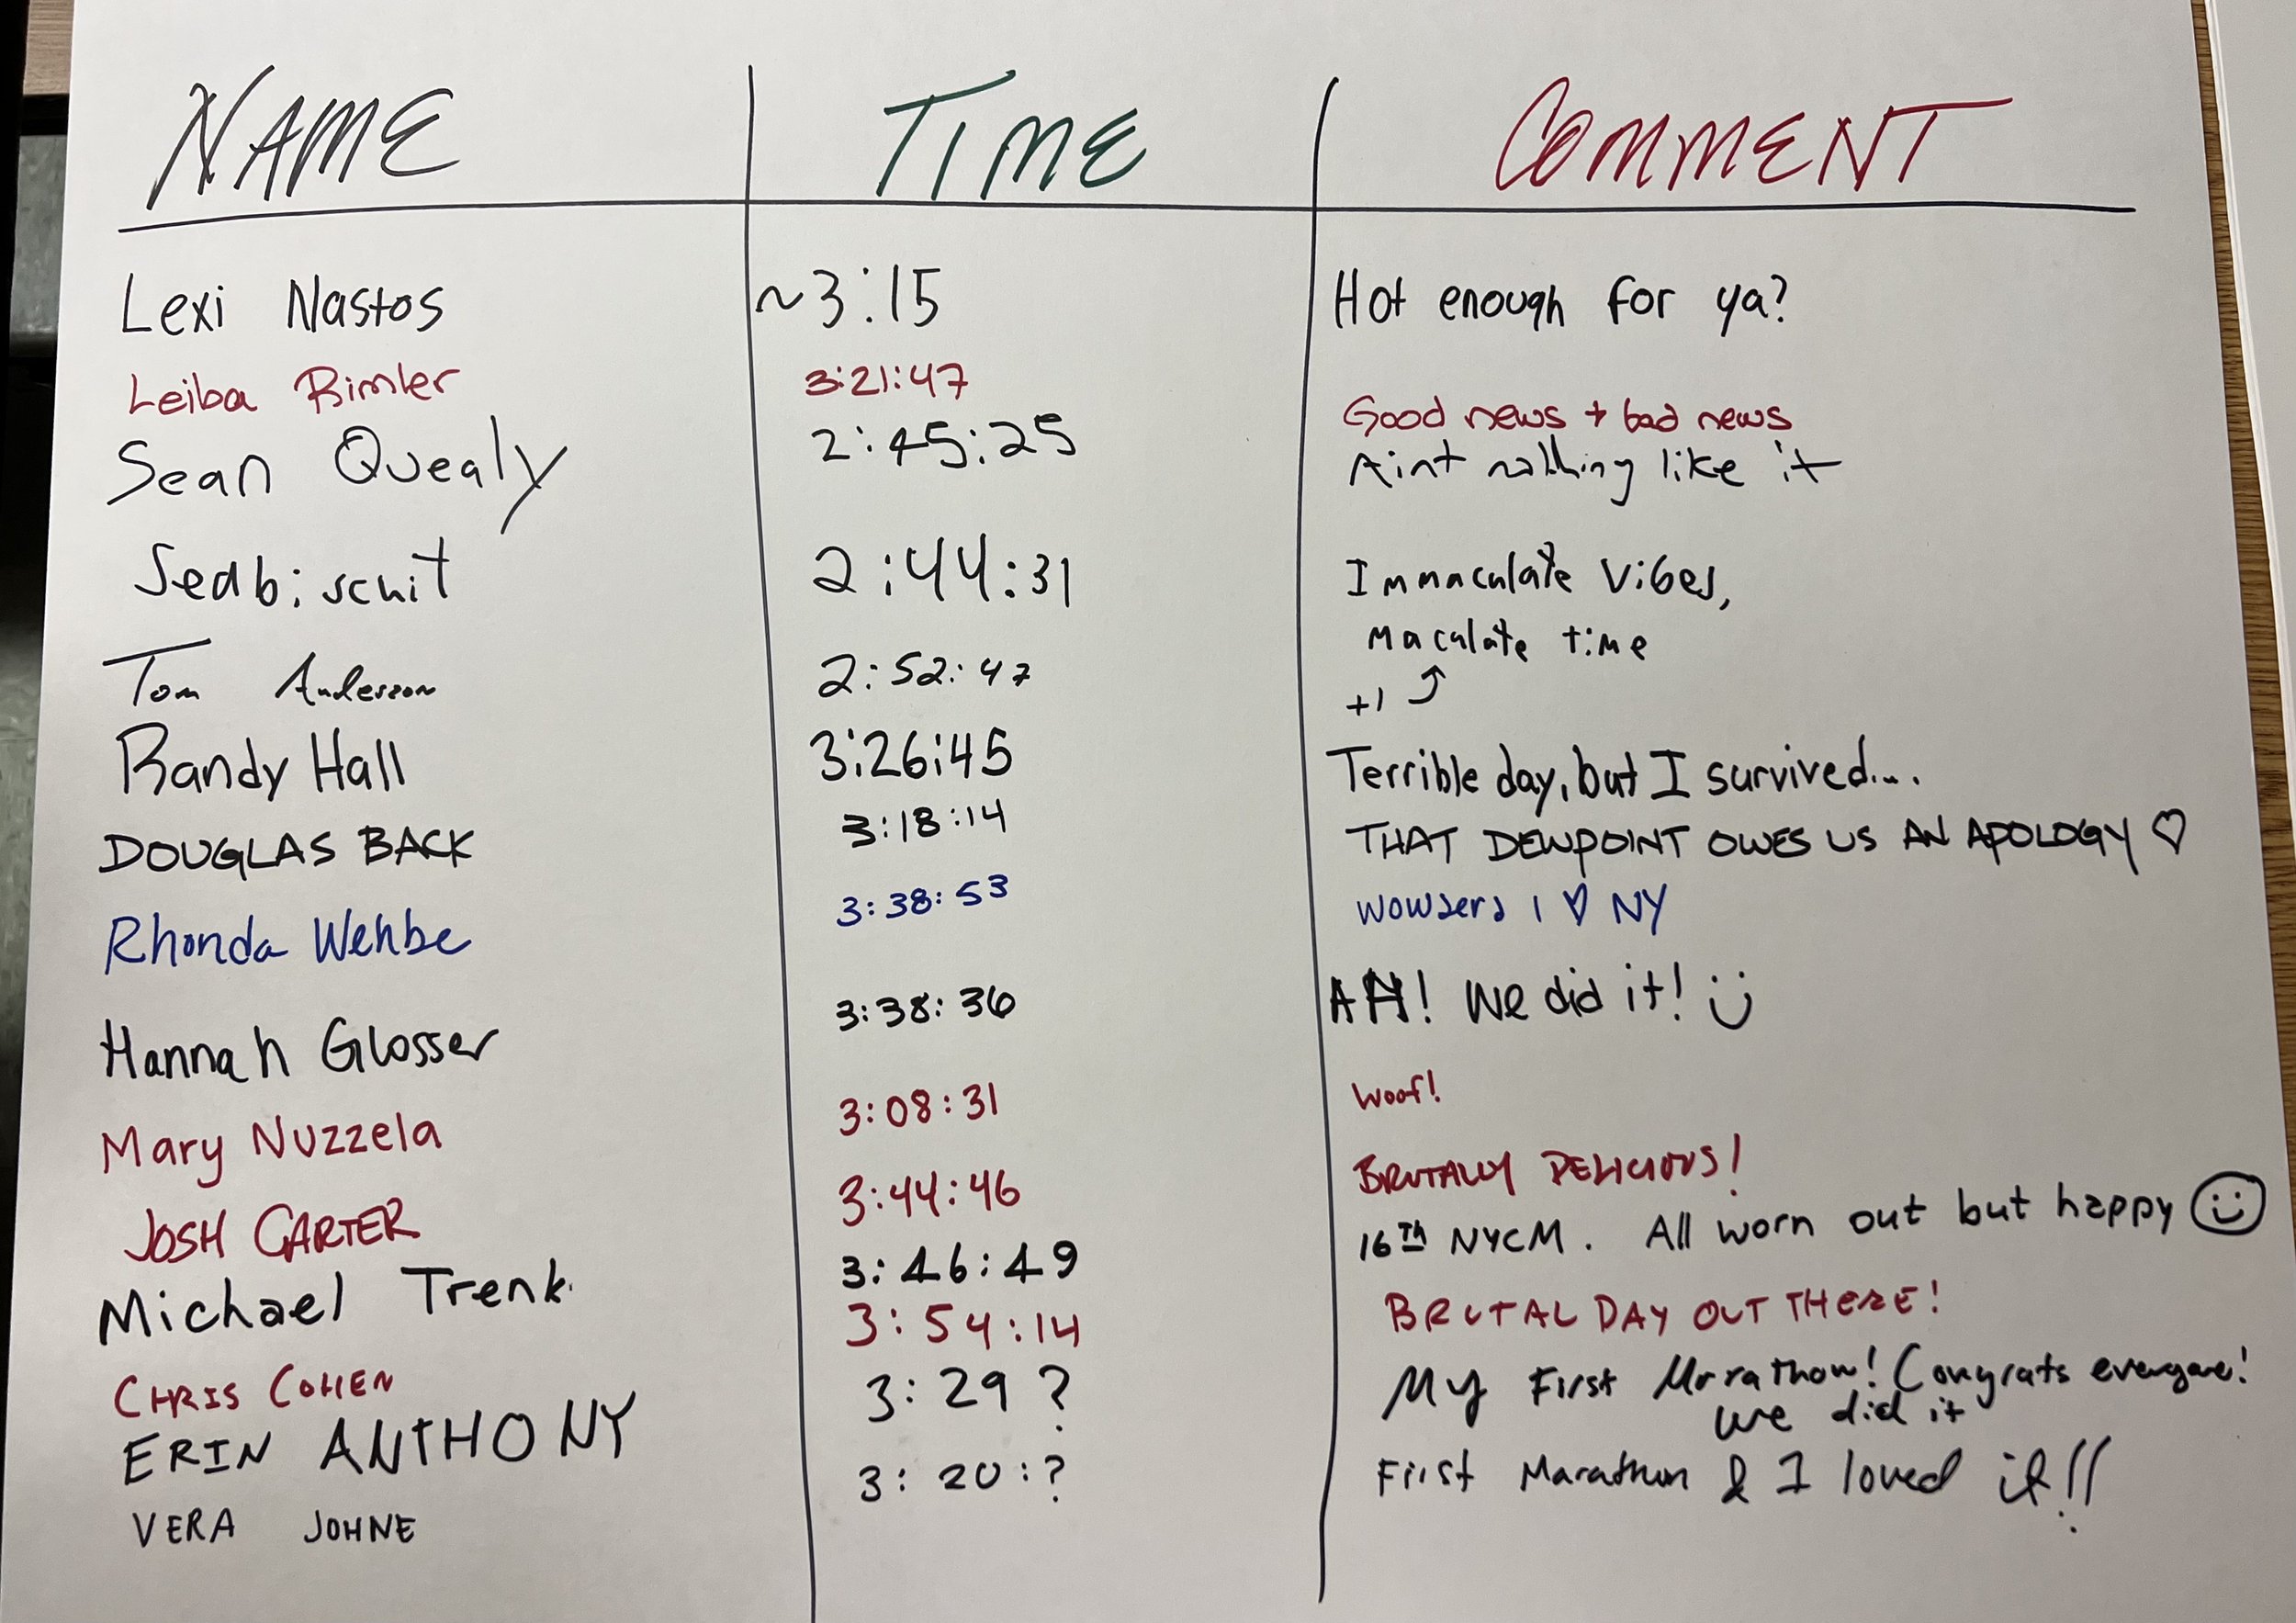 NAME TIME COMMENT
Lexi Nastos ~3:15 Hot enough for ya?
Leiba Rimler 3:21:47 Good news + bad news
Sean Quealy 2:45:25 Aint nothing like it
Seabiscuit 2:44:31 Immaculate Vibes,
Maculate time
Tom Anderson 2:52:47 +1
Randy Hall 3:26:45 Terrible day, but I survived...
DOUGLAS BACK 3:18:14 THAT DEWPOINT OWES US AN APOLOGY ♡
Rhonda Wehbe 3:38:53 Wowsers I ♡ NY
Hannah Glosser 3:38:36 AH! We did it! :)
Mary Nuzzela 3:08:31 Woof!
JOSH CARTER 3:44:46 BRUTALLY DELICIOUS!
Michael Trenk 3:46:49 16TH NYCM. All worn out but happy :)
CHRIS COHEN 3:54:14 BRUTAL DAY OUT THERE!
ERIN ANTHONY 3:29? My First Marathon! Congrats everyone!
we did it
VERA JOHNE 3:20:? First Marathon & I loved it!!